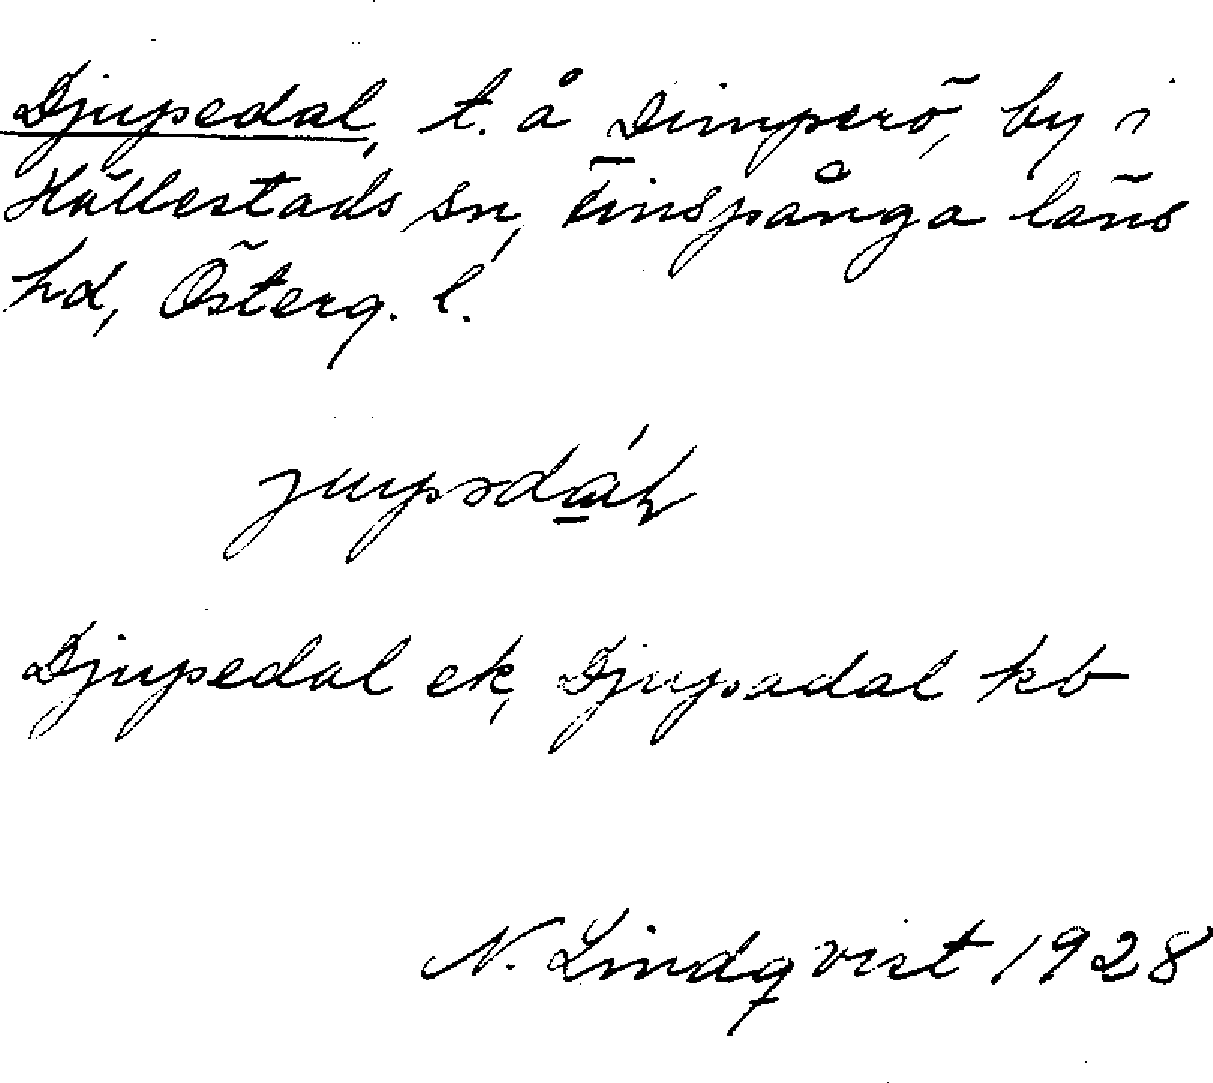 Djupedal, t. å Dimperö, by i
Hällestads sn, Finspånga läns
hd, Österg. l.
jupədáɫ
Djupedal ek, Djupadal kb
N. Lindqvist 1928